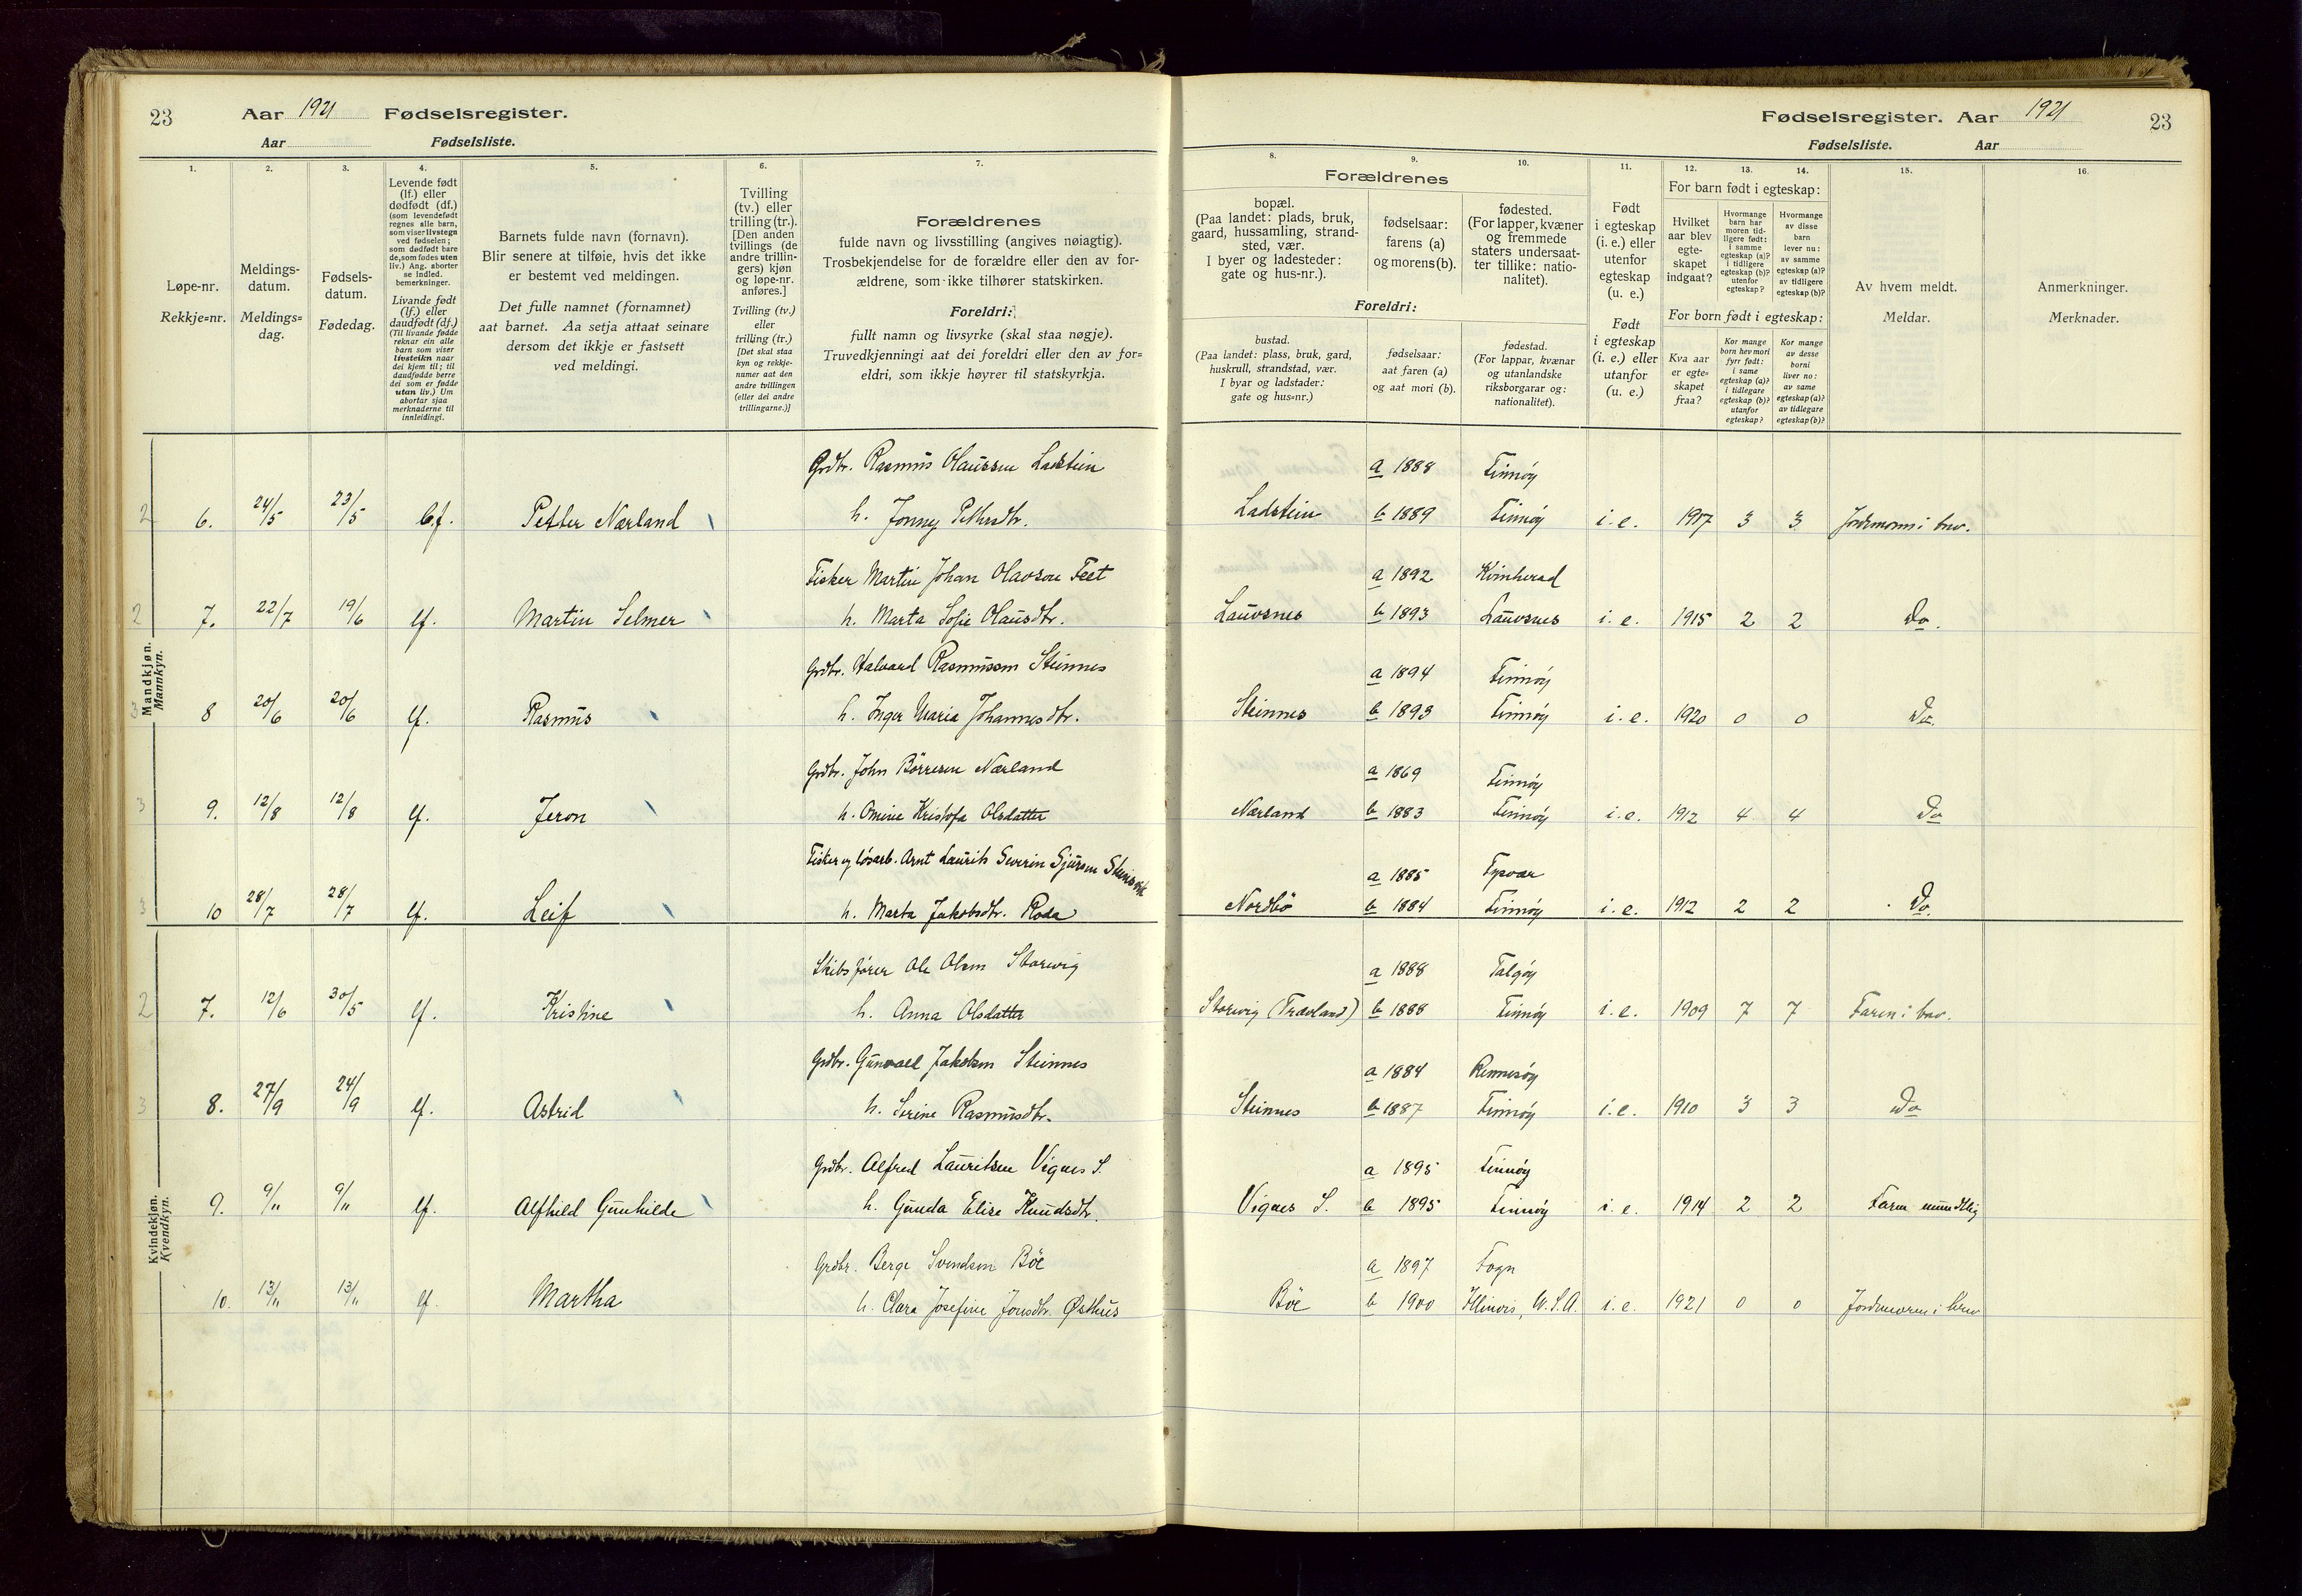 23 Aar 1921 Fødselsregister.
Aar Fødselsliste.
Fødselsregister. Aar 1921 23
Fødselsliste. Aar
1. 2. 3. 4. 5. 6. 7.
Løpe-nr.
Rekkje=nr.
Meldings-
datum.
Meldings=
dag.
Fødsels-
datum.
Fødedag.
Levende født
(lf.) eller
dødfødt (df.)
(som levendefødt
regnes alle barn,
som viser livstegn
ved fødselen;
som dødfødt bare
de, som fødes uten
liv.) Ang. aborter
se indled.
bemerkninger.
Livande født
(lf.) eller
daudfødt (df.)
(Til livande fødde
reknar ein alle
barn som viser
livsteikn naar
dei kjem til; til
daudfødde berre
dei som er fødde
utan liv.) Um
abortar sjaa
merknaderne til
innleidingi.
Barnets fulde navn (fornavn).
Blir senere at tilføie, hvis det ikke
er bestemt ved meldingen.
Det fulle namnet (fornamnet)
aat barnet. Aa setja attaat seinare
dersom det ikkje er fastsett
ved meldingi.
Tvilling
(tv.) eller
trilling (tr.).
[Den anden
tvillings (de
andre trillin-
gers) kjøn
og løpe-nr.
anføres.]
Tvilling (tv.)
eller
trilling (tr.)
[Det skal staa
kyn og rekkje-
numer aat den
andre tvillingen
(eller dei andre
trillingarne.)]
Forældrenes
fulde navn og livsstilling (angives nøiagtig).
Trosbekjendelse for de forældre eller den av for-
ældrene, som ikke tilhører statskirken.
Foreldri:
fullt namn og livsyrke (skal staa nøgje).
Truvedkjenningi aat dei foreldri eller den av for=
eldri, som ikkje høyrer til statskyrkja.
8. 9. 10. 11. 12. 13. 14. 15. 16.
Forældrenes
bopæl.
(Paa landet: plads, bruk,
gaard, hussamling, strand-
sted, vær.
I byer og ladesteder:
gate og hus-nr.).
fødselsaar:
farens (a)
og morens (b).
fødested.
(For lapper, kvæner
og fremmede
staters undersaat-
ter tillike: natio-
nalitet).
Foreldri:
bustad.
(Paa landet: plass, bruk, gard,
huskrull, strandstad, vær.
I byar og ladstader:
gate og hus=nr.)
fødselsaar:
aat faren (a)
og aat mori (b).
fødestad.
(For lappar, kvænar
og utanlandske
riksborgarar og:
nationalitet).
Født
i egteskap
(i. e.) eller
utenfor
egteskap
(u. e.)
Født
i egteskap
(i. e.) eller
utanfor
(u. e.)
For barn født i egteskap:
Hvilket
aar blev
egte-
skapet
indgaat?
Hvormange
barn har
moren tid-
ligere født:
i samme
egteskap (a)?
i tidligere
egteskap (b)?
utenfor
egteskap?
Hvormange
av disse
barn
lever nu:
av samme
egteskap (a)?
av tidligere
egteskap (b)?
For born født i egteskap:
Kva aar
er egte=
skapet
fraa?
Kor mange
born hev mori
fyrr født:
i same
egteskap (a)?
i tidlegare
egteskap (b)?
utanfor
egteskap?
Kor mange
av desse
borni
liver no:
av same
egteskap (a)?
av tidlegare
egteskap (b)?
Av hvem meldt.
Meldar.
Anmerkninger.
Merknader.
Mandkjøn.
Mannkyn.
Grdbr. Rasmus Olaussen Ladstein a 1888 Finnøy
2 6. 24/5 23/5 lf. Petter Nærland h. Jonny Pettersdtr. Ladstein b 1889 Finnøy i. e. 1907 3 3 Jordmoren i brev.
Fisker Martin Johan Olavson Feet a 1892 Kvinherad
2 7. 22/7 19/6 lf. Martin Selmer h. Marta Sofie Olausdtr. Lauvsnes b 1893 Lauvsnes i. e. 1915 2 2 Do.
Grdbr. Halvard Rasmussen Steinnes a 1894 Finnøy
3 8 20/6 20/6 lf. Rasmus h. Inger Maria Johannesdtr. Steinnes b 1893 Finnøy i. e. 1920 0 0 Do.
Grdbr. John Børresen Nærland a 1869 Finnøy
3 9. 12/8 12/8 lf. Jeron h. Omine Kristofa Olsdatter Nærland b 1883 Finnøy i. e. 1912 4 4 Do
Fisker og løsarb. Arnt Laurits Severin Sjursen a 1885 Tysvær
3 10 28/7 28/7 lf. Leif h. Marta Jakobsdtr. Roda Nordbö b 1884 Finnøy i. e. 1912 2 2 Do.
Kvindekjøn.
Kvendkyn.
Skibsfører Ole Olsen Storvig a 1888 Talgøy
2 7. 12/6 30/5 lf. Kristine h. Anna Olsdatter Storvig (Trævland) b 1888 Finnøy i. e. 1909 7 7 Faren i brev.
Grdbr. Gunvall Jakobsen Steinnes a 1884 Rennesøy
3 8. 27/9 24/9 lf. Astrid h. Serine Rasmusdtr. Steinnes b 1887 Finnøy i. e. 1910 3 3 Do
Grdbr. Alfred Lauritsen Vignes S. a 1895 Finnøy
9. 9/11 9/11 lf. Alfhild Gunhilde h. Gunda Elise Knudsdtr. Vignes S. b 1895 Finnøy i. e. 1914 2 2 Faren mundtlig
Grdbr. Berge Svendsen Böe a 1897 Fogn
10. 13/11 13/11 lf. Martha h. Clara Josefine Jonsdtr. Østhus Böe b 1900 Illinois, U.S.A. i. e. 1921 0 0 Jordmoren i brev